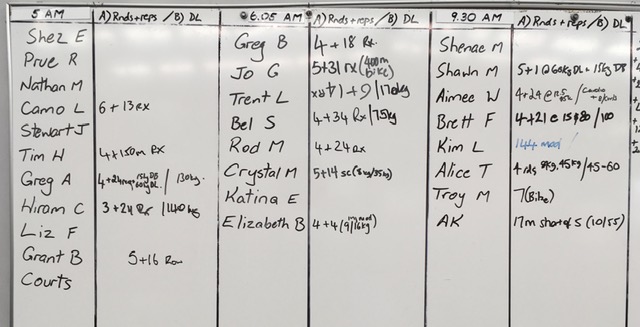 5 AM A) Rnds + reps / B) DL
Shez E
Prue R
Nathan M
Camo L 6 + 13 RX
Stewart J
Tim H 4 + 150m RX
Greg A 4+24 15kg DB 60kg DL / 130kg.
Hiram C 3 + 24 Rx / 140 kg
Liz F
Grant B 5+16
Courts
6.05 AM A) Rnds + reps / B) DL
Greg B 4 + 18 Rx.
Jo G 5+31 rx (400m Bike)
Trent L 4 + 9 / 170kg
Bel S 4+34 Rx / 75kg
Rod M 4 + 24 Rx
Crystal M 5+14 sc (8kg/35kg)
Katina E
Elizabeth B 4 + 4 (9/16kg)
9.30 AM A) Rnds + reps / B) DL
Shenae M
Shawn M 5+1 @ 60kg DL + 15kg DB
Aimee W 4+24 @ 12.5
Brett F 4+21 @ 15 & 80 / 100
Kim L 144 mod
Alice T 4 rds 9kg. 45kg / 45-60
Troy M 7 (Bike)
AK 17m short of 5 (10/55)